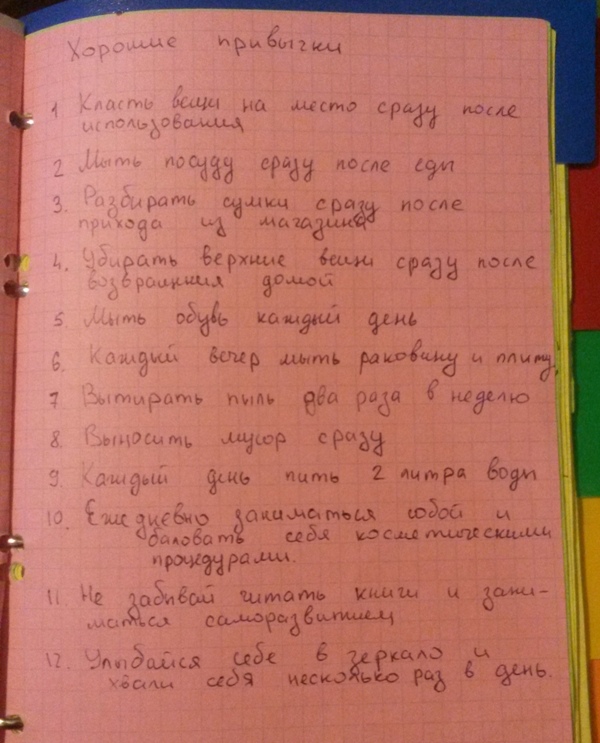 Хорошие привычки
1 Класть вещи на место сразу после
использования
2 Мыть посуду сразу после еды
3. Разбирать сумки сразу после
прихода из магазина
4. Убирать верхние вещи сразу после
возвращения домой
5 Мыть обувь каждый день
6. Каждый вечер мыть раковину и плиту.
7 Вытирать пыль два раза в неделю
8 Выносить мусор сразу
9. Каждый день пить 2 литра воды
10. Ежедневно заниматься собой и
баловать себя косметическими
процедурами.
11. Не забывай читать книги и зани-
маться саморазвитием
12. Улыбайся себе в зеркало и
хвали себя несколько раз в день.